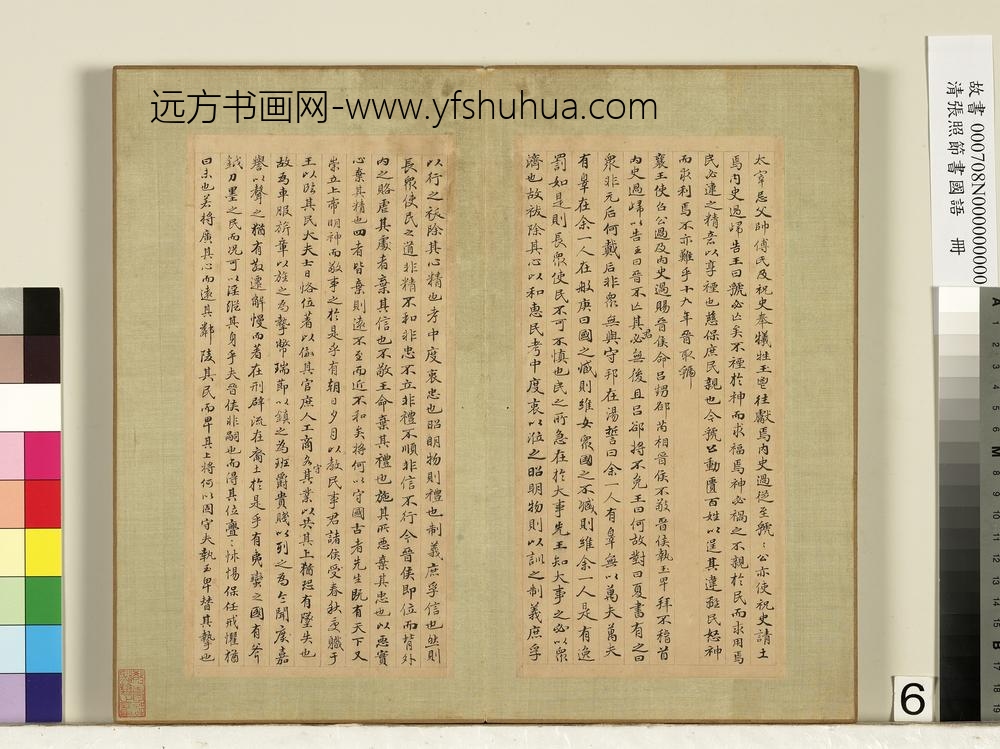 远方书画网-www.yfshuhua.com
故書 000708N000000000
清張照節書國語 冊
太宰忌父帥傅氏及祝史奉犧牲玉鬯往獻焉內史過從至虢：公亦使祝史請土
焉內史過歸告王曰虢必亡矣不禋於神而求福焉神必禍之不親於民而求用焉
民必違之精意以享禋也慈保庶民親也今虢公動匱百姓以逞其違離民怒神
而求利焉不亦難乎十九年晉取虢
襄王使召公過及內史過賜晉侯命呂甥郤芮相晉侯不敬晉侯執玉卑拜不稽首
內史過歸以告王曰晉不亡其君必無後且呂郤將不免王曰何故對曰夏書有之曰
衆非元后何戴后非衆無與守邦在湯誓曰余一人有辠無以萬夫萬夫
有辠在余一人在般庚曰國之臧則維女衆國之不臧則維余一人是有逸
罰如是則長衆使民不可不慎也民之所急在於大事先王知大事之必以衆
濟也故祓除其心以和惠民考中度衷以涖之昭明物則以訓之制義庶孚
以行之祓除其心精也考中度衷忠也昭明物則禮也制義庶孚信也然則
長衆使民之道非精不和非忠不立非禮不順非信不行今晉侯即位而背外
內之賂虐其處者棄其信也不敬王命棄其禮也施其所惡棄其忠也以惡實
心棄其精也四者皆棄則遠不至而近不和矣將何以守國古者先王既有天下又
崇立上帝明神而敬事之於是乎有朝日夕月以教民事君諸侯受春秋受職于
王以臨其民大夫士日恪位著以儆其官庶人工商各守其業以共其上猶恐有墜失也
故為車服旂章以旌之為摯幣瑞節以鎮之為班爵貴賤以列之為令聞廣嘉
譽以聲之猶有散遷解慢而著在刑辟流在裔土於是乎有夷蠻之國有斧
鉞刀墨之民而況可以淫縱其身乎夫晉侯非嗣也而得其位亹：怵惕保任戒懼猶
曰未也若將廣其心而遠其鄰陵其民而卑其上將何以固守夫執玉卑替其摯也
6